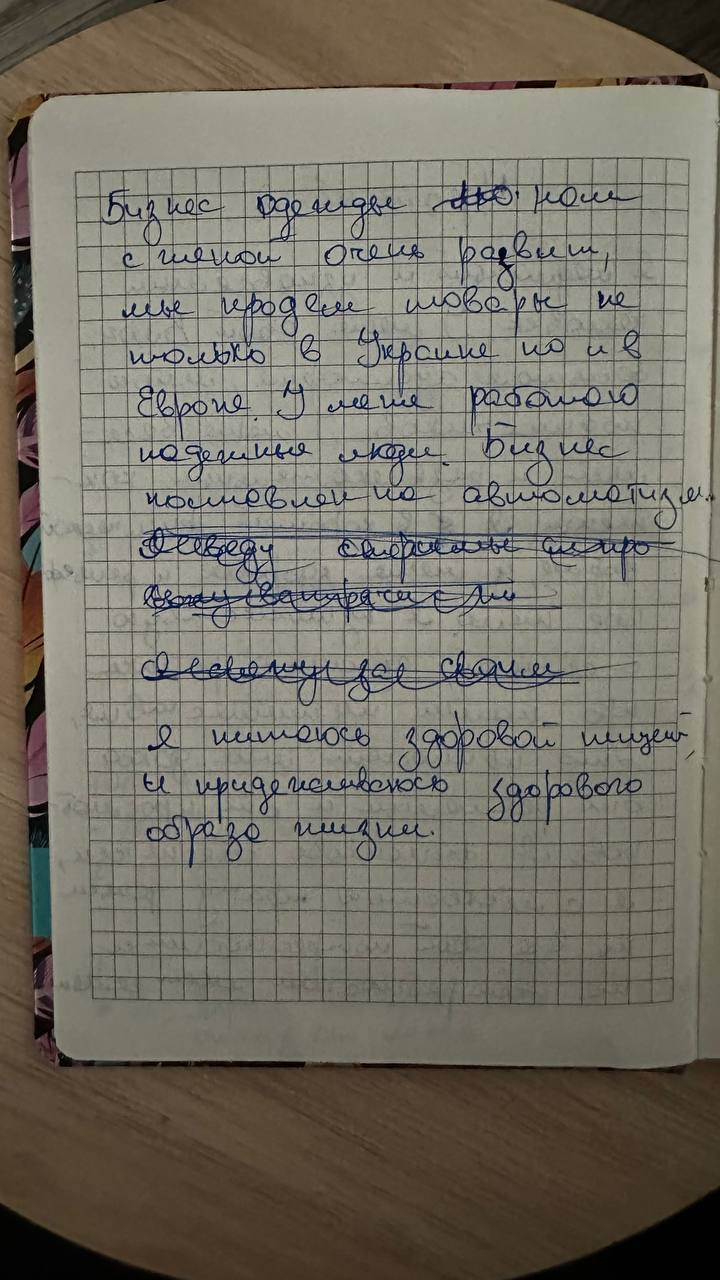 Бизнес одежды наш
с женой очень развит,
мы продаем товары не
только в Украине но и в
Европе. У меня работаю
надежные люди. Бизнес
поставлен на автоматизм.
Я питаюсь здоровой пищей,
и придерживаюсь здорового
образа жизни.